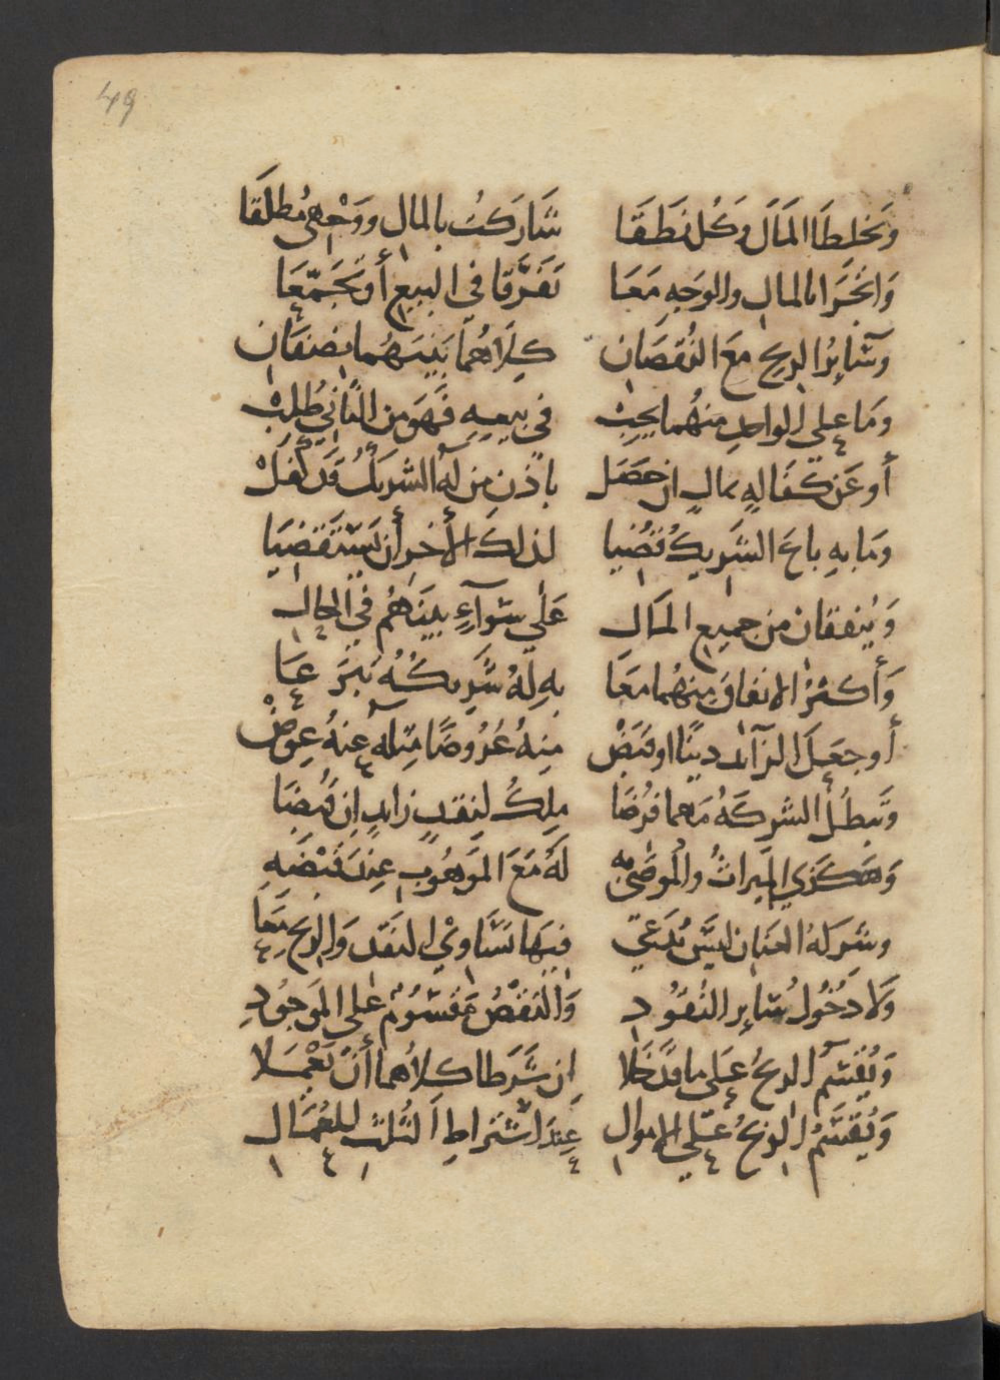 49
وَيَخلِطَا المَالَ وَكُل نَطَقَا شَارَكتُ بالمال ووَجْهي مُطلَقَا
وَاتجَرَا بالمالِ والوَجهِ مَعَا تفَرَّقا في البيع أو تجَمّعَا
وسَايرُ الربح مَعَ النُقصَانِ كِلَاهُما بَينَهُما نِصفَانِ
ومَا علي الواحدِ منهُما يجِبْ في بيعِهِ فَهوَ مِن الثاني طُلِبْ
أو عَن كفَالهٍ بمالٍ ان حَصَل باذنِ مِن لهُ الشريكُ قَد كفَلْ
ومَا بهِ باعَ الشَريكُ قُضُيا لذلكَ الأخر أن يَستَقضِيَا
وَيُنفقان من جميع المَالِ عَلي سَوآءٍ بينَهُم في الحالِ
وَأكثرُ الانفاق مِنهُما مَعَا بهِ لهُ شَريكُهُ تبَرَعَا
أو جعَلَ الزآئد دينًا او قبَضْ منهُ عُرُوضًا مثله عنهُ عِوضْ
وَتبطُلُ الشركَهُ مَهما فرُضَا ملِكُ لنقدٍ زايدٍ اِن قُبِضَا
وَهَكَذي المِيراثُ والمُوصَى به لَهُ مَعَ المَوهُوبِ عِندَ قَبْضهِ
وشركهُ العنانِ ليسَ تدَعي فيهَا تسَاوي النقد وَالربح مَعَا
وَلا دُخُولُ سَايرِ النُقُودِ وَالنَقصُ مَقسُومٌ على المَوجُودِ
وَيُقسَمُ الربحُ عَلي ما قَد خَلا اِن شَرَطا كلاهُما أنْ يَعْمَلا
وَيُقسَمُ الربحُ عَلي الاموالِ عِندَ اشترَاطِ الثُلث للعُمَّالِ